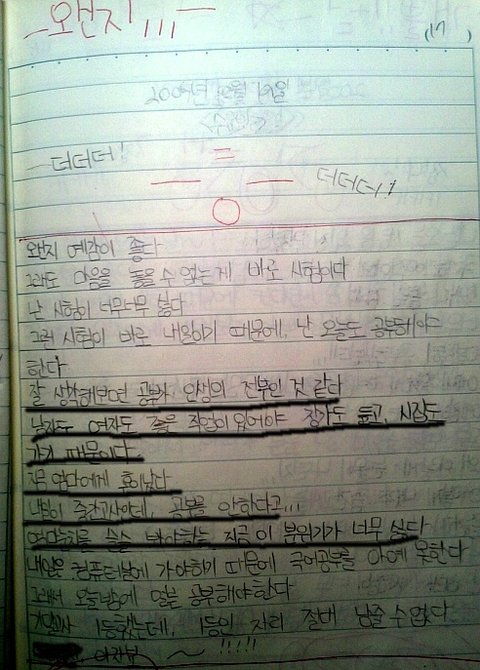 왠지,,,
(17)
2009년 10월 19일
더더더!
더더더!!
왠지 예감이 좋다
그래도 마음을 놓을 수 없는게 바로 시험이다
난 시험이 너무너무 싫다
그런 시험이 바로 내일이기 때문에, 난 오늘도 공부해야
한다
잘 생각해보면 공부가 인생의 전부인 것 같다
남자도 여자도 좋은 직업이 있어야 장가도 들고, 시집도
가기 때문이다
지금 엄마에게 혼이났다
내일이 중간고사인데, 공부를 안한다고...
엄마눈치를 슬슬 봐야하는 지금 이 분위기가 너무 싫다
내일은 컴퓨터실에 가야하기 때문에 국어공부를 아예 못한다
그래서 오늘밤에 열분 공부해야한다
1등했는데, 1등인 자리 절대 남줄 수 없다
아자뵤 ~ !!!!!